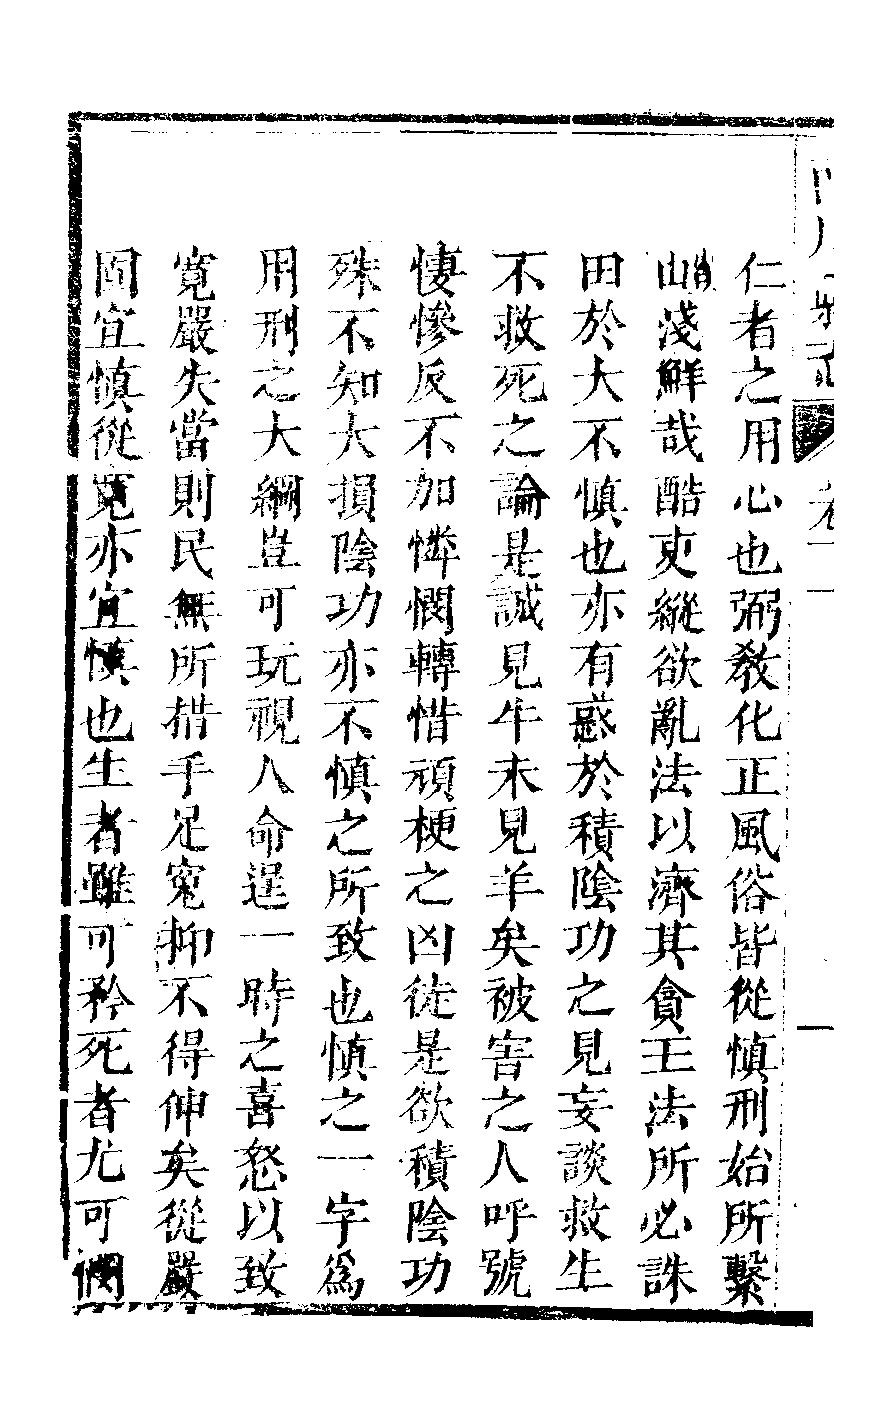 仁者之用心也弼教化正風俗皆從慎刑始所繫
豈淺鮮哉酷吏縱欲亂法以濟其貪王法所必誅
田於大不慎也亦有惑於積陰功之見妄談救生
不救死之論是誠見牛未見羊矣被害之人呼號
悽慘反不加憐憫轉惜頑梗之凶徒是欲積陰功
殊不知大損陰功亦不慎之所致也慎之一字為
用刑之大綱豈可玩視人命逞一時之喜怒以致
寬嚴失當則民無所措手足寃抑不得伸矣從嚴
固宜慎從寬亦宜慎也生者雖可矜死者尤可憫